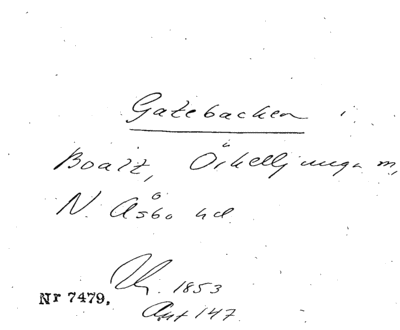 Gatebacken i
Boalt, Örkelljunga m,
N. Åsbo hd
1853
Nr 7479.
Akt 147